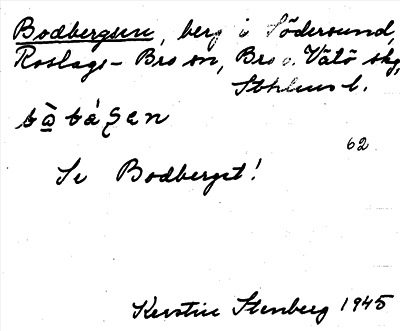 Bodbergen, berg i Södersund,
Roslags-Bro sn, Bro o. Vätö skg,
Sthlms l.
62
Se Bodberget!
Kerstin Stenberg 1945